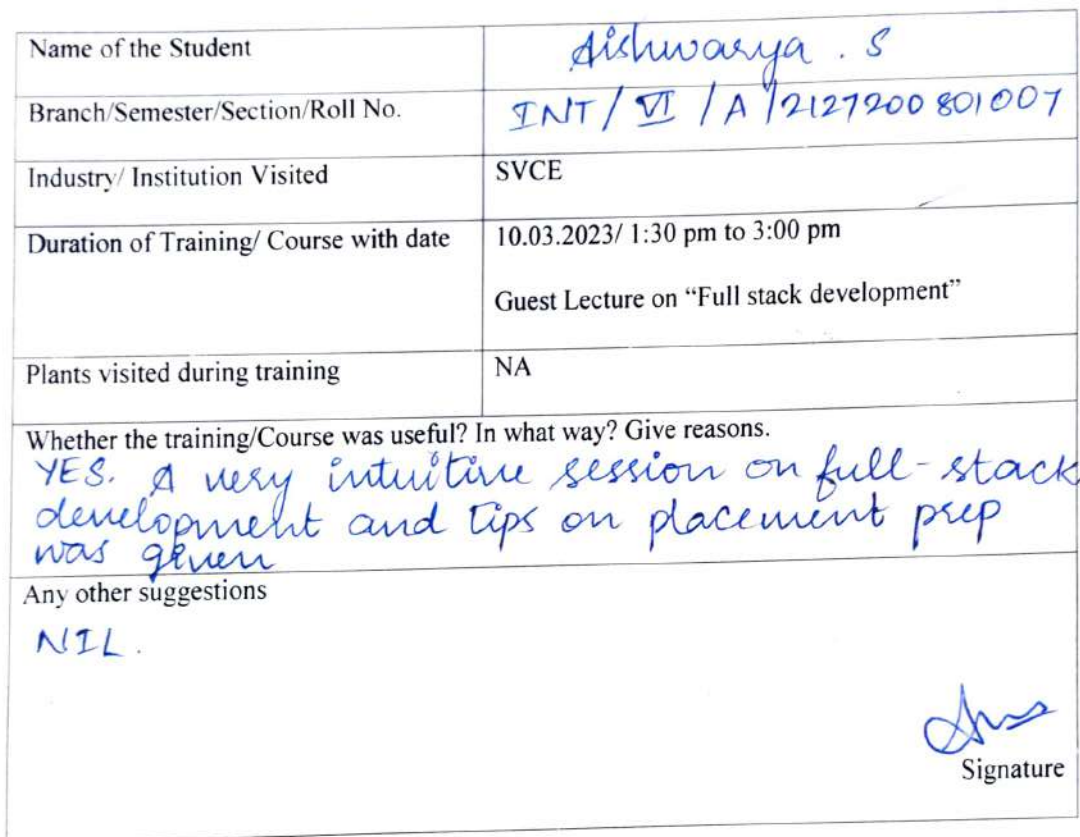 Name of the Student Aishwarya . S
Branch/Semester/Section/Roll No. INT / VI / A / 2127200801007
Industry/ Institution Visited SVCE
Duration of Training/ Course with date 10.03.2023/ 1:30 pm to 3:00 pm
Guest Lecture on “Full stack development”
Plants visited during training NA
Whether the training/Course was useful? In what way? Give reasons.
YES. A very intuitive session on full-stack
development and tips on placement prep
was given
Any other suggestions
NIL.
Signature